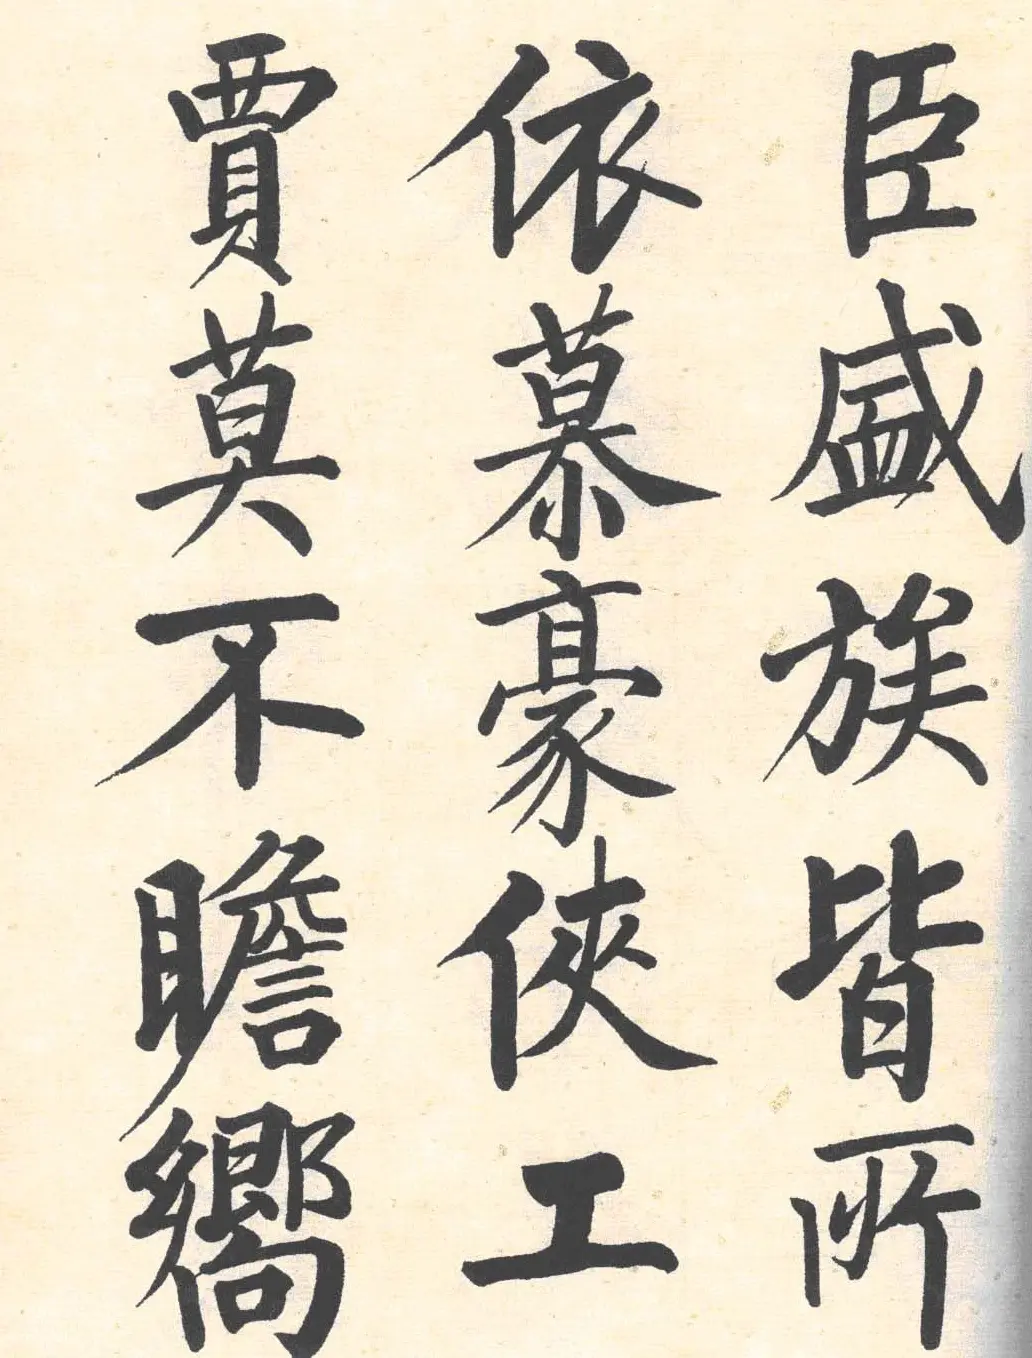 臣盛族皆所
依慕豪俠工
賈莫不瞻嚮